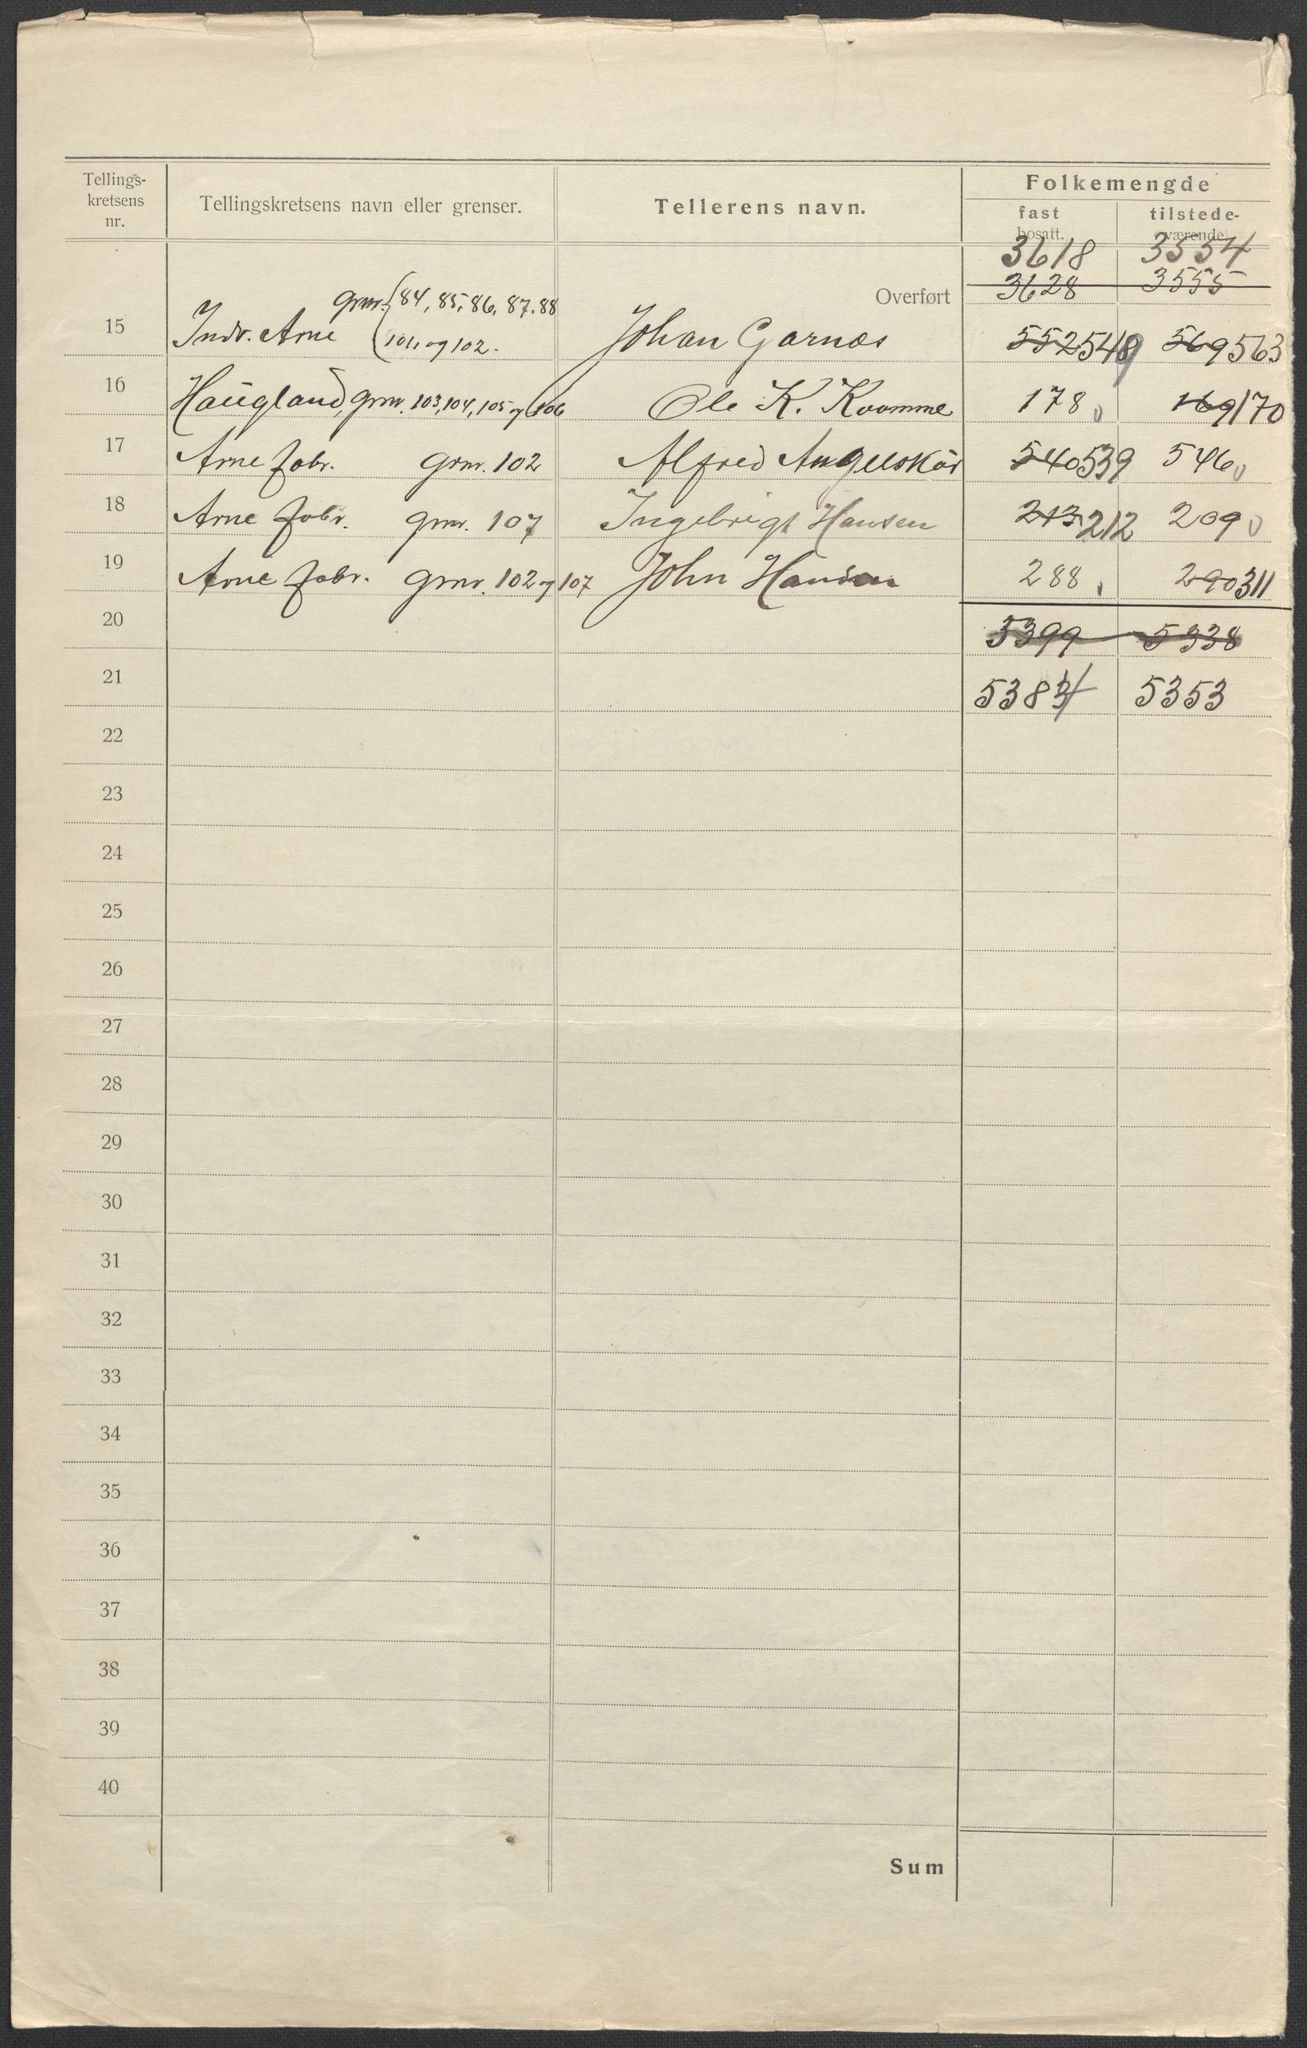 Tellings-kretsens nr. Tellingskretsens navn eller grenser. Tellerens navn. Folkemengde
fast bosatt. tilstede-værende
3618 3554
Overført 3628 3555
gnr. (84, 85, 86, 87, 88
15 Indr. Arne (101, og 102. Johan Garnæs 552 549 569 563
16 Haugland, gnr. 103, 104, 105 og 106 Ole K. Kvamme 178 169 170
17 Arne fabr. gnr. 102 Alfred 540 539 546
18 Arne fabr. gnr. 107 Ingebrigt Hansen 213 212 209
19 Arne fabr. gnr. 102 og 107 John Hansen 288 290 311
20 5399 5338
21 5384 5353
22
23
24
25
26
27
28
29
30
31
32
33
34
35
36
37
38
39
40
Sum